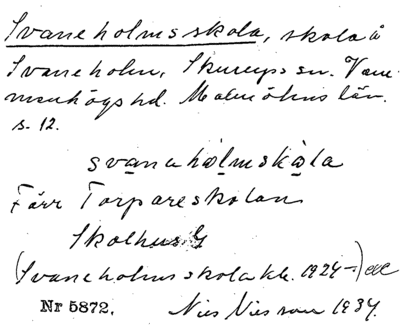 Svaneholmsskola, skola å
Svaneholm, Skurups sn. Vem-
menhögs hd. Malmöhus län.
s. 12.
svanahålmskåla
Förr Torpareskolan
Skolhus. G
(Svaneholmsskola kb. 1924-)
Nr 5872. Nils Nilsson 1937.